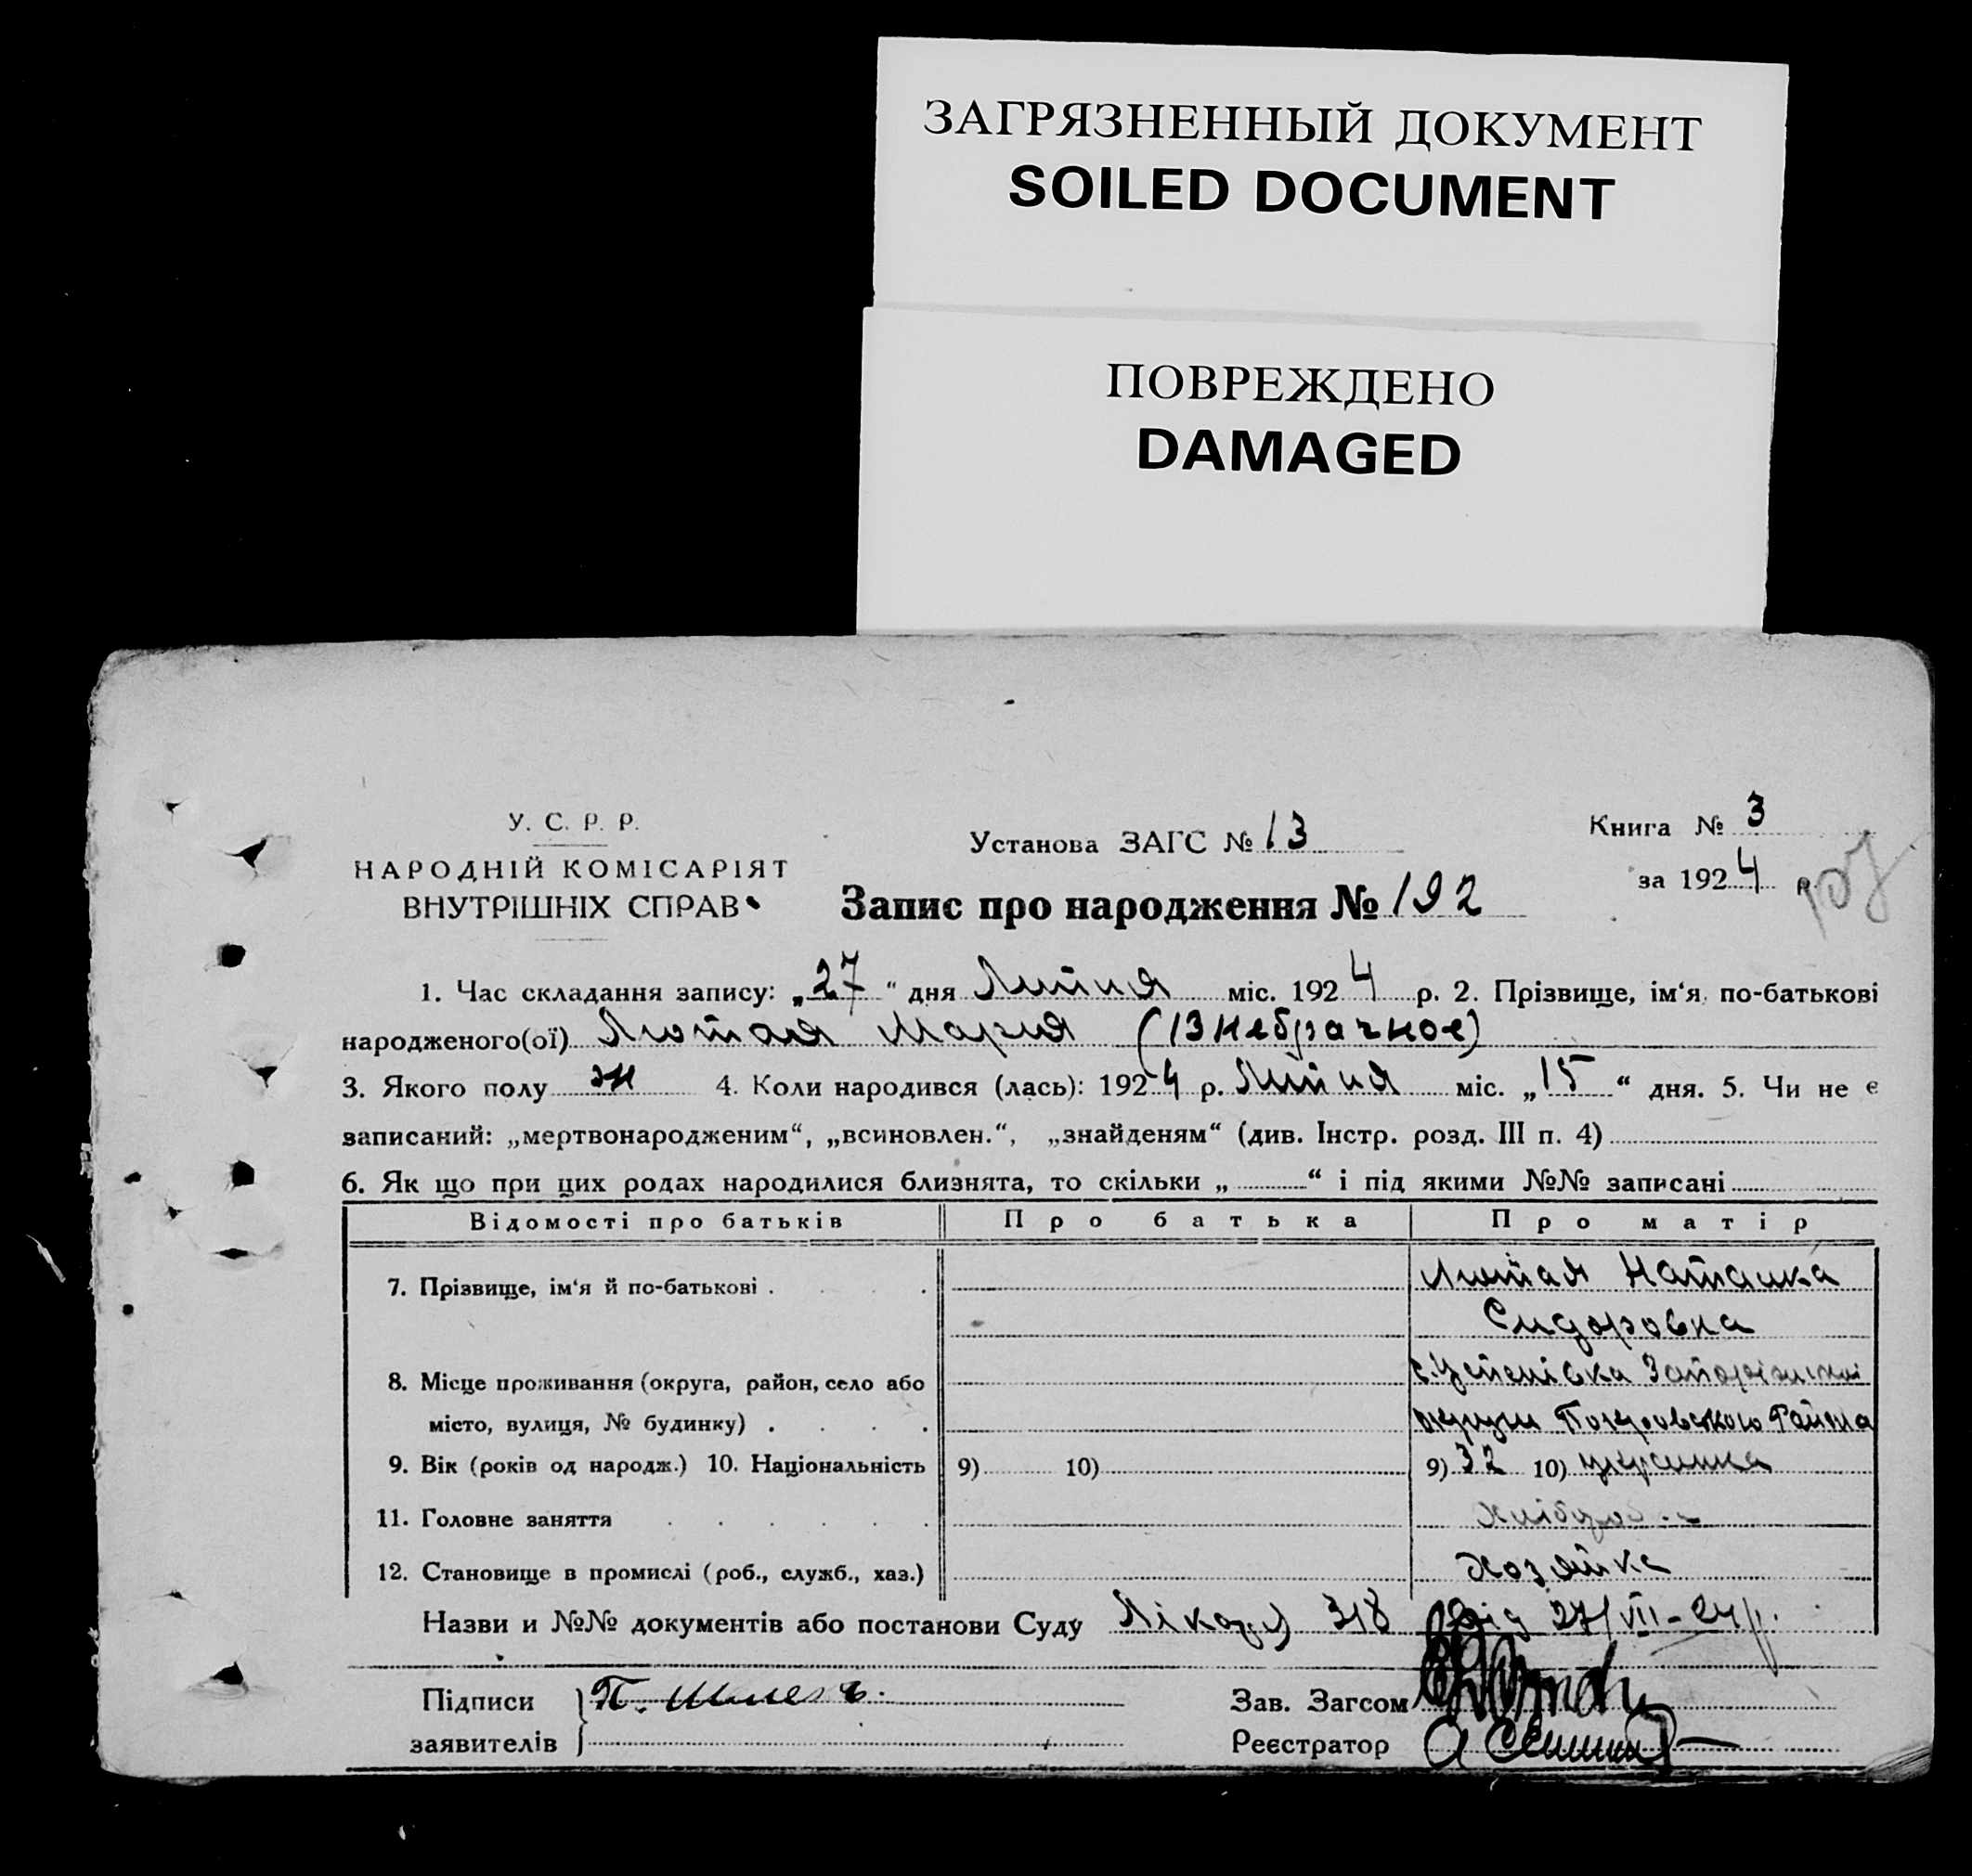 ЗАГРЯЗНЕННЫЙ ДОКУМЕНТ
SOILED DOCUMENT
ПОВРЕЖДЕНО
DAMAGED
У. С. Р. Р.
НАРОДНІЙ КОМІСАРІЯТ
ВНУТРІШНІХ СПРАВ
Установа ЗАГС № 13
Запис про народження № 192
Книга № 3
за 1924 р.
1. Час складання запису: „27“ дня Липня міс. 1924 р. 2. Прізвище, ім‘я, по-батькові
народженого(ої) Лютая Мария
3. Якого полу ж 4. Коли народився (лась): 1924 р. Липня міс. „15“ дня. 5. Чи не є
записаний: „мертвонародженим“, „всиновлен.“, „знайденям“ (див. Інстр. розд. III п. 4)
6. Як що при цих родах народилися близнята, то скільки „ “ і під якими №№ записані
Відомості про батьків Про батька Про матір
7. Прізвище, ім‘я й по-батькові . . . . Лютая Наташка
Сидоровна
8. Місце проживання (округа, район, село або с. Успенівка Запорізької
місто, вулиця, № будинку) . . . . округи Покровського Района
9. Вік (років од народж.) 10. Національність 9) 10) 9) 32 10) украинка
11. Головне заняття . . . . . .
12. Становище в промислі (роб., служб., хаз.) Хозяйка
Назви и №№ документів або постанови Суду 318 від 27/VII-24 р.
Підписи П.
заявителів
Зав. Загсом
Реєстратор